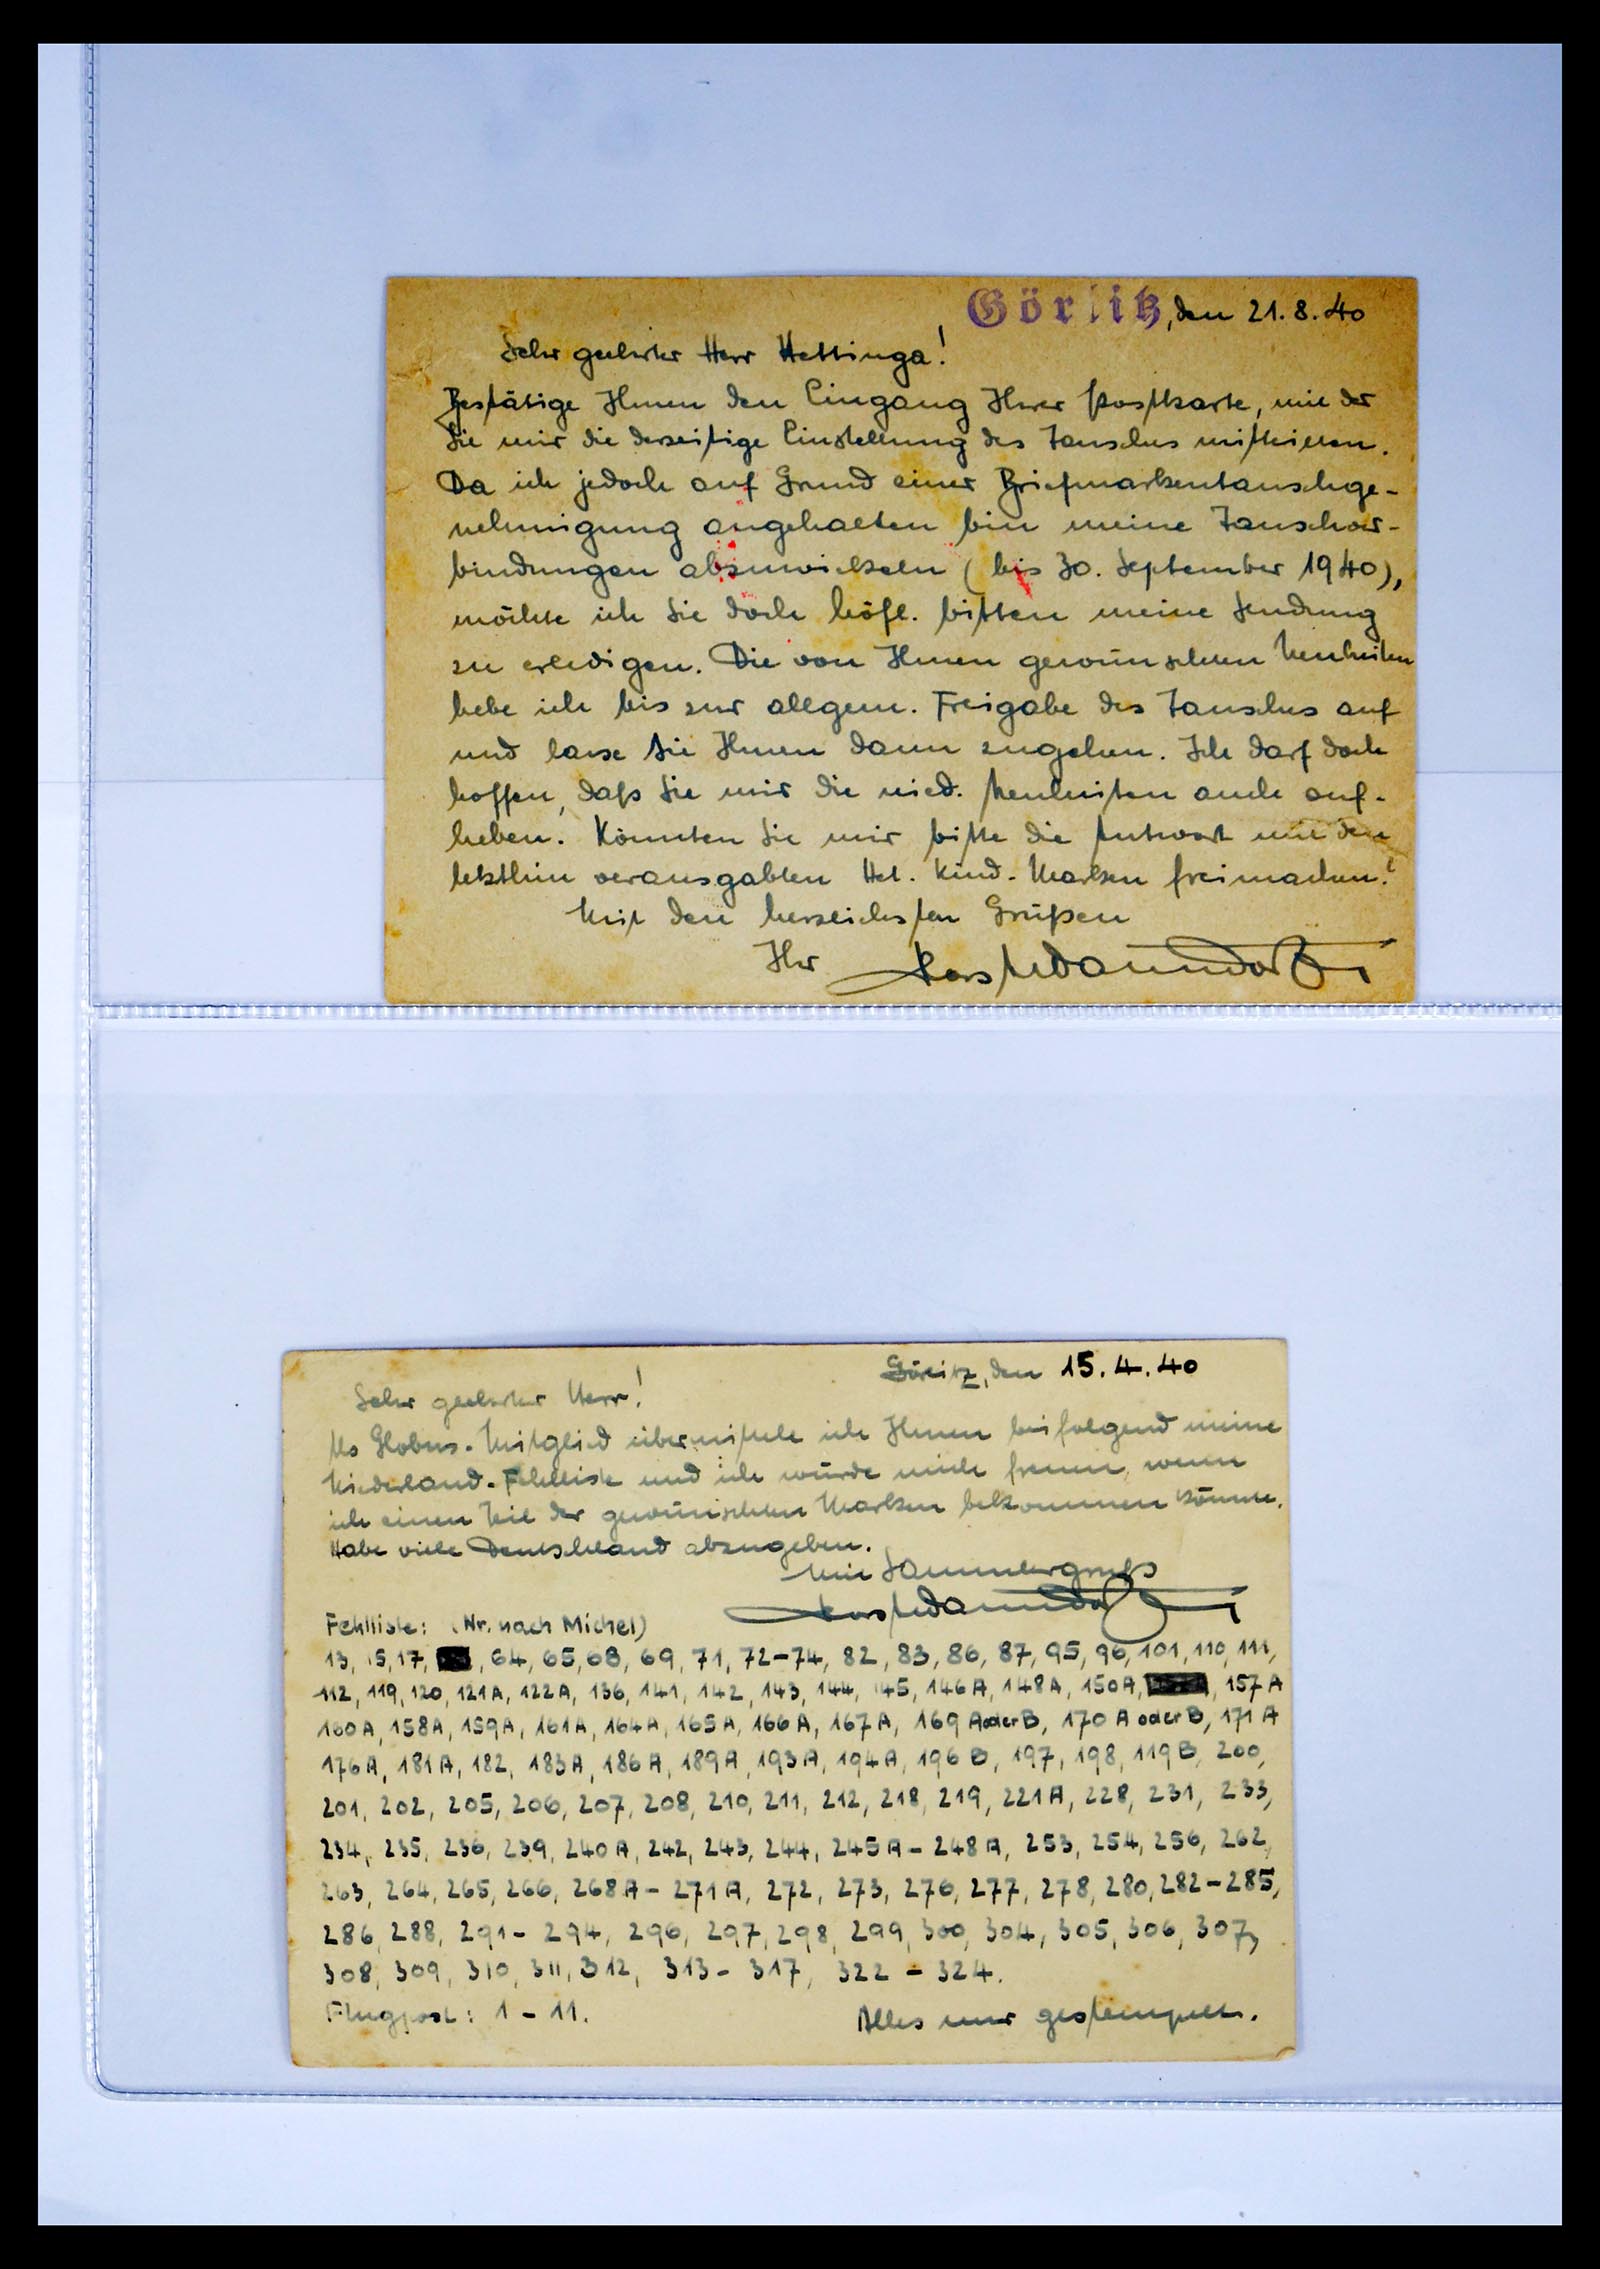 Görlitz, den 21.8.40
Sehr geehrter Herr Hettinga!
Bestätige Ihnen den Eingang Ihrer Postkarte, mit der
Sie mir die derzeitige Einstellung des Tausches mitteilten.
Da ich jedoch auf Grund einer Briefmarkentauschge-
nehmigung angehalten bin meine Tauschver-
bindungen abzuwickeln (bis 30. September 1940),
möchte ich Sie doch höfl. bitten meine Sendung
zu erledigen. Die von Ihnen gewünschten Neuheiten
hebe ich bis zur allgem. Freigabe des Tausches auf
und lasse sie Ihnen dann zugehen. Ich darf doch
hoffen, daß Sie mir die nied. Neuheiten auch auf-
heben. Könnten Sie mir bitte die Antwort mit den
letzthin verausgabten Het. Kind-Marken freimachen?
Mit den herzlichsten Grüßen
Ihr
Görlitz, den 15.4.40
Sehr geehrter Herr!
Als Globus-Mitglied übermittele ich Ihnen beifolgend meine
Niederland-Fehlliste und ich würde mich freuen, wenn
ich einen Teil der gewünschten Marken bekommen könnte.
Habe viele Deutschland abzugeben.
Mit Sammlergruß
Fehlliste: (Nr. nach Michel)
13, 15, 17, 64, 65, 68, 69, 71, 72-74, 82, 83, 86, 87, 95, 96, 101, 110, 111,
112, 119, 120, 121A, 122A, 136, 141, 142, 143, 144, 145, 146A, 148A, 150A, 157A
160A, 158A, 159A, 161A, 164A, 165A, 166A, 167A, 169 A oder B, 170 A oder B, 171 A
176A, 181A, 182, 183A, 186A, 189A, 193A, 194A, 196B, 197, 198, 119B, 200,
201, 202, 205, 206, 207, 208, 210, 211, 212, 218, 219, 221A, 228, 231, 233,
234, 235, 236, 239, 240A, 242, 243, 244, 245A - 248A, 253, 254, 256, 262,
263, 264, 265, 266, 268A - 271A, 272, 273, 276, 277, 278, 280, 282-285,
286, 288, 291 - 294, 296, 297, 298, 299, 300, 304, 305, 306, 307,
308, 309, 310, 311, 312, 313 - 317, 322 - 324.
Flugpost: 1 - 11.
Alles nur gestempelt.